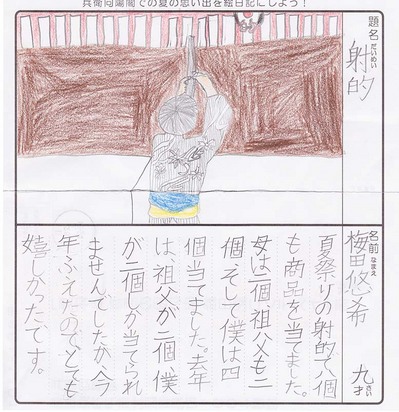 兵衛向陽閣での夏の思い出を絵日記にしよう！
題名 だいめい
射的
名前 なまえ
梅田悠希 九才 さい
夏祭りの射的で八個
も商品を当てました。
母は二個、祖父も二
個、そして僕は四
個当てました。去年
は、祖父が二個、僕
が二個しか当てられ
ませんでしたが、今
年ふえたので、とても
嬉しかったです。